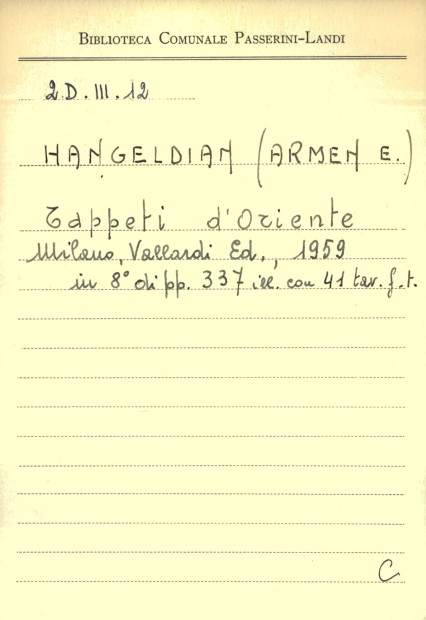 BIBLIOTECA COMUNALE PASSERINI-LANDI
2D.III.12
HANGELDIAN (ARMEN E.)
Tappeti d'Oriente
Milano, Vallardi Ed., 1959
in 8° di pp. 337 ill. con 41 tav. f.t.
C